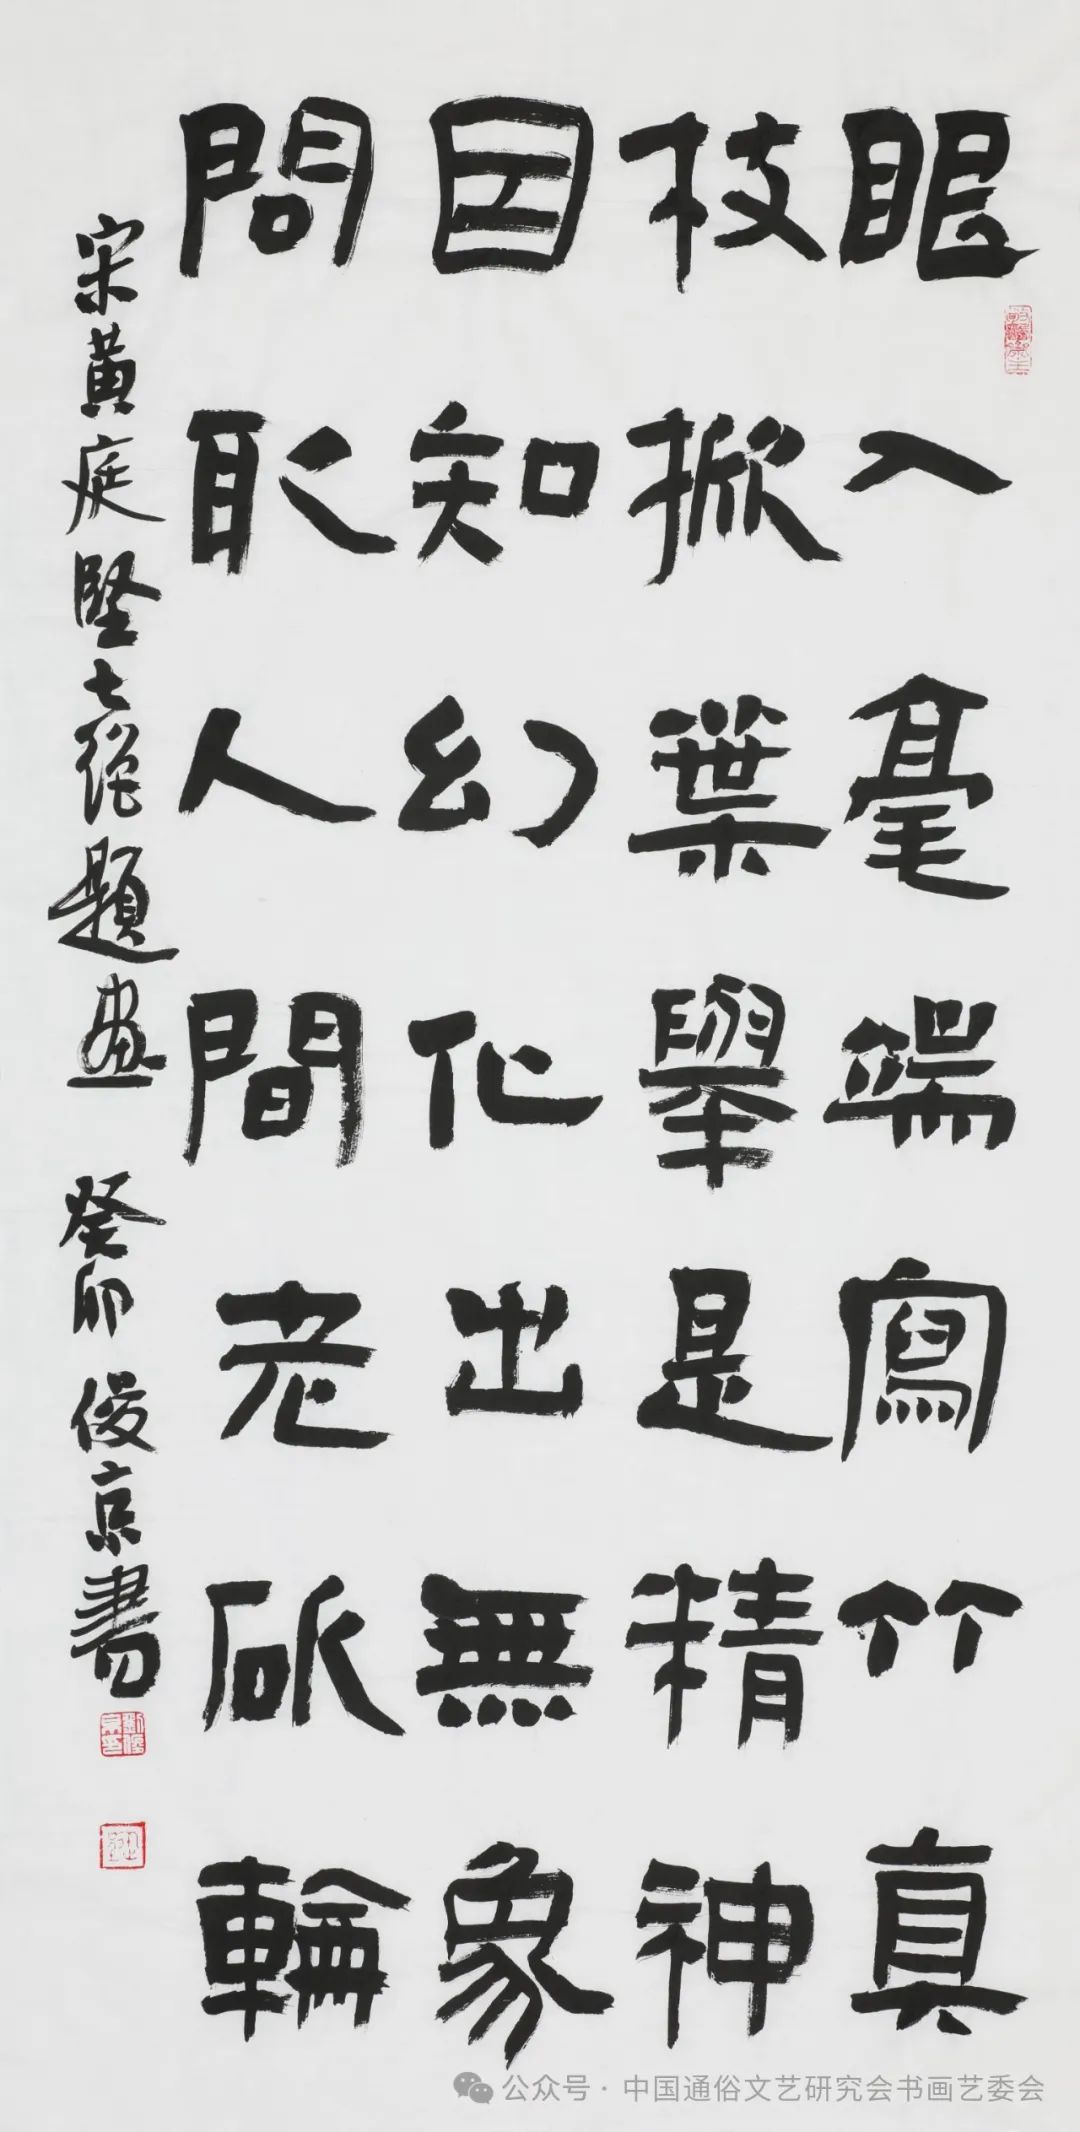 眼入毫端寫竹真
枝掀葉舉是精神
因知幻化出無象
問取人間老斫輪
宋黄庭堅七絕題畫 癸卯 俊京書
公众号·中国通俗文艺研究会书画艺委会